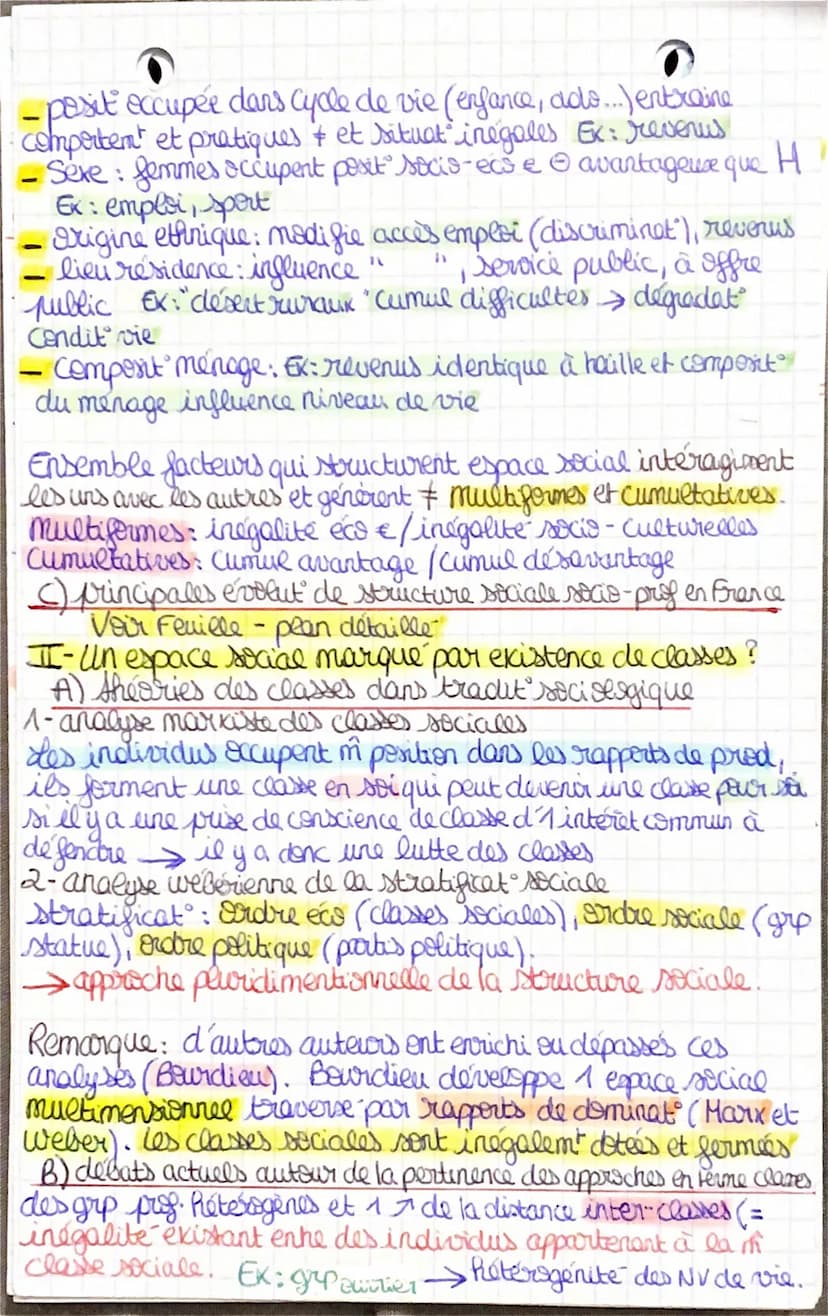 - posit° occupée dans cycle de vie (enfance, ado...) entraine
comportemt et pratiques ≠ et situat° inégales Ex: revenus
- Sexe : femmes occupent posit° socio-éco € ⊖ avantageuse que H
Ex : emploi, sport
- Origine ethnique: modifie accès emploi (discriminat°), revenus
- lieu résidence : influence " ", service public, à offre
public Ex: "désert ruraux" Cumul difficultés → dégradat°
condit° vie
- Composit° ménage: Ex: revenus identique à taille et composit°
du ménage influence niveau de vie
Ensemble facteurs qui structurent espace social intéragissent
les uns avec les autres et génèrent ≠ multiformes et cumultatives.
Multiformes: inégalité éco €/inégalité socio-culturelles
Cumultatives: Cumul avantage / Cumul désavantage
C) principales évolut° de structure sociale socio-prof en France
Voir Feuille - plan détaillé
II- Un espace social marqué par existence de classes ?
A) théories des classes dans tradit° sociologique
1- analyse marxiste des classes sociales
des individus occupent m̂ position dans les rapports de prod,
ils forment une classe en soi qui peut devenir une classe pour soi
si il y a une prise de conscience de classe d'1 intérêt commun à
défendre → il y a donc une lutte des classes
2- analyse webérienne de la stratificat° sociale
stratificat° : Ordre éco (classes sociales), ordre sociale (grp
statue), ordre politique (partis politique).
→ approche pluridimentionnelle de la structure sociale.
Remarque: d'autres auteurs ont enrichi ou dépassés ces
analyses (Bourdieu). Bourdieu développe 1 espace social
multimensionnel traversé par rapports de dominat° (Marx et
Weber). Les classes sociales sont inégalemt dotées et fermées
B) débats actuels autour de la pertinence des approches en terme classes
des grp prof. hétérogènes et 1 ↗ de la distance inter-classes (=
inégalité existant entre des individus appartenant à la m̂
classe sociale. Ex: grp ouvrier → hétérogénité des NV de vie.